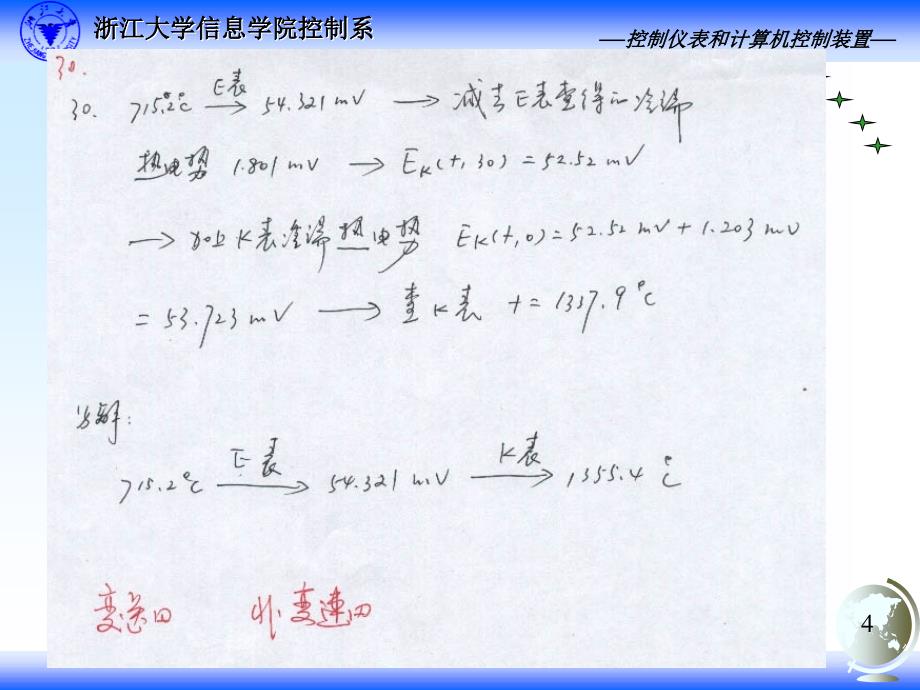 浙江大学信息学院控制系
—控制仪表和计算机控制装置—
30.
30. 715.2℃ E表→ 54.321 mV → 减去E表查得的冷端
热电势 1.801 mV → EK(t,30) = 52.52 mV
→ 加上K表冷端热电势 EK(t,0) = 52.52 mV + 1.203 mV
= 53.723 mV → 查K表 t = 1337.9℃
715.2℃ E表→ 54.321 mV K表→ 1355.4℃
4